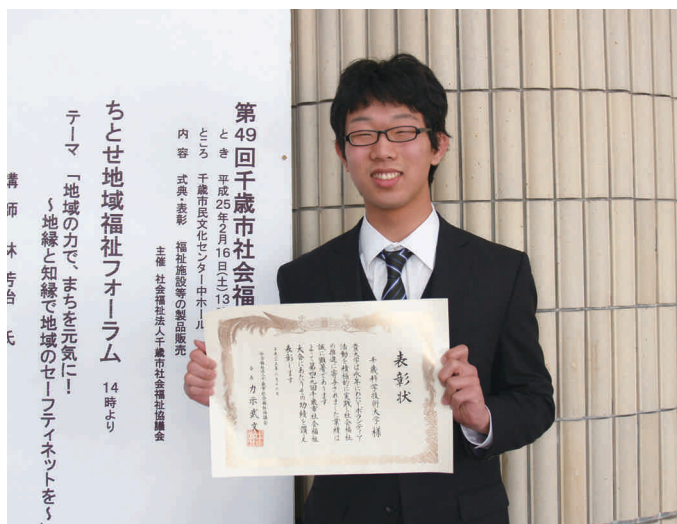 第49回千歳市社会福
とき 平成25年2月16日(土)13
ところ 千歳市民文化センター中ホール
内容 式典・表彰 福祉施設等の製品販売
主催 社会福祉法人千歳市社会福祉協議会
ちとせ地域福祉フォーラム 14時より
テーマ 「地域の力で、まちを元気に!
~地縁と知縁で地域のセーフティネットを~
講師 林 芳治 氏
表彰状
千歳科学技術大学 様
貴大学は永年にわたりボランティア
活動を積極的に実践し社会福祉
の推進に寄与されました業績は
誠に顕著であります
よって第四十九回千歳市社会福祉
大会にあたりその功績を讃え
表彰します